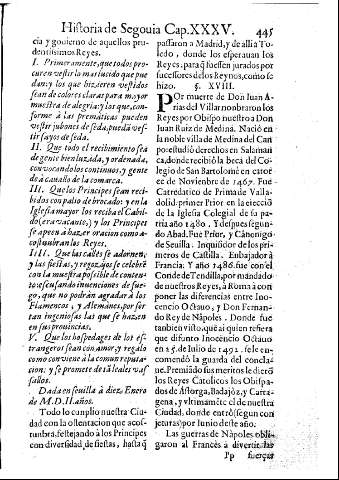 Historia de Segouia Cap. XXXV. 445
cia y gouierno de aquellos pru-
dentissimos Reyes.
I. Primeramente, que todos pro-
curen vestir lo mas lucido que pue
dan: y los que hizieren vestidos
sean de colores claras para mayor
muestra de alegria: y los que, con-
forme à las prematicas pueden
vestir jubones de seda, pueda ves-
tir sayos de seda.
II. Que todo el recibimiento sea
de gente bien luzida, y ordenada,
convocando los continuos, y gente
de à cauallo de la comarca.
III. Que los Principes sean reci-
bidos con palio de brocado: y en la
Iglesia mayor los reciba el Cabil-
do (era vacante,) y los Principes
se apeen à hazer oracion como a-
costumbran los Reyes.
IIII. Que las calles se adornen;
y las fiestas, y regozijos se celebre
con la muestra posible de conten-
to: escusando inuenciones de fue-
go, que no podràn agradar à los
Flamencos, y Alemànes, por ser
tan ingeniosas las que se hazen
en sus prouincias.
V. Que los hospedages de los es-
trangeros sean con amor, y regalo
como conviene à la comun reputa-
cion: y se promete de tà leales vas
sallos.
Dada en seuilla à diez Enero
de M.D.II. años.
Todo lo cunplio nuestra Ciu-
dad con la ostentacion que acos-
tunbra, festejando à los Principes
con diversidad de fiestas, hasta q̃
passaron a Madrid, y de alli à To-
ledo, donde los esperauan los
Reyes: para q̃ fuessen jurados por
sucessores de los Reynos, como se
hizo. §. XVIII.
POr muerte de Don Iuan A-
rias del Villar nonbraron los
Reyes por Obispo nuestro a Don
Iuan Ruiz de Medina. Naciò en
la noble villa de Medina del Can
po: estudiò derechos en Salamã-
ca, donde recibiò la beca del Co-
legio de San Bartolomè en catoꝛ
ce de Noviembre de 1467. Fue
Catredatico de Prima de Valla-
dolid: primer Prior en la ereccion
de la Iglesia Colegial de su pa-
tria año 1480, y despues segun-
do Abad. Fue Prior, y Cãnonigo
de Seuilla. Inquisidor de los pri-
meros de Castilla. Enbajador à
Francia. Y año 1486. fue con el
Conde de Tendilla, por mandado
de nuestros Reyes, à Roma à con
poner las diferencias entre Ino-
cencio Octauo, y Don Fernan-
do Rey de Nàpoles. Donde fue
tanbien visto, què ai quien refiera
que difunto Inocencio Octauo
en 25. de Iulio de 1492. se le en-
comendò la guarda del concla-
ue. Premiado sus meritos le dierõ
los Reyes Catolicos los Obispa-
dos de Astorga, Badajoz, y Carta-
gena, y vltimamẽte el de nuestra
Ciudad, donde entrò (segun con
jeturas) por Iunio deste año.
Las guerras de Nàpoles obli-
garon al Francès à divertir las
Pp fuerças